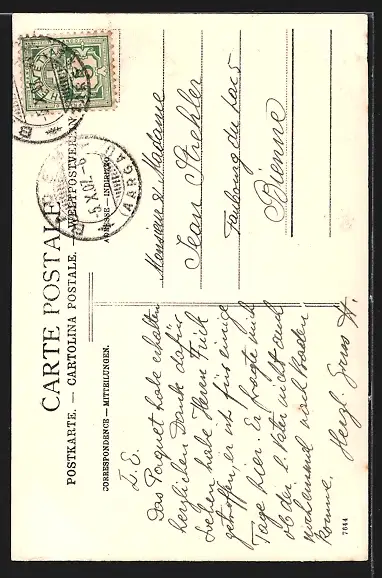 CARTE POSTALE
WELTPOSTVEREIN
POSTKARTE. — CARTOLINA POSTALE.
CORRESPONDENCE — MITTEILUNGEN.
ADRESSE — INDIRIZZO
5
-5.X.07.-6
(AARGAU)
Monsieur & Madame
Jean Strehler
Faubourg du Lac 5
Bienne
L. E.
Das Paquet habe erhalten
herzlichen Dank dafür.
Soeben habe Herrn Frick
getroffen, er ist für einige
Tage hier. Er fragte mich
ob der l. Vater nicht auch
nochmal nach Baden
komme.
Herzl. Gruss H.
7644